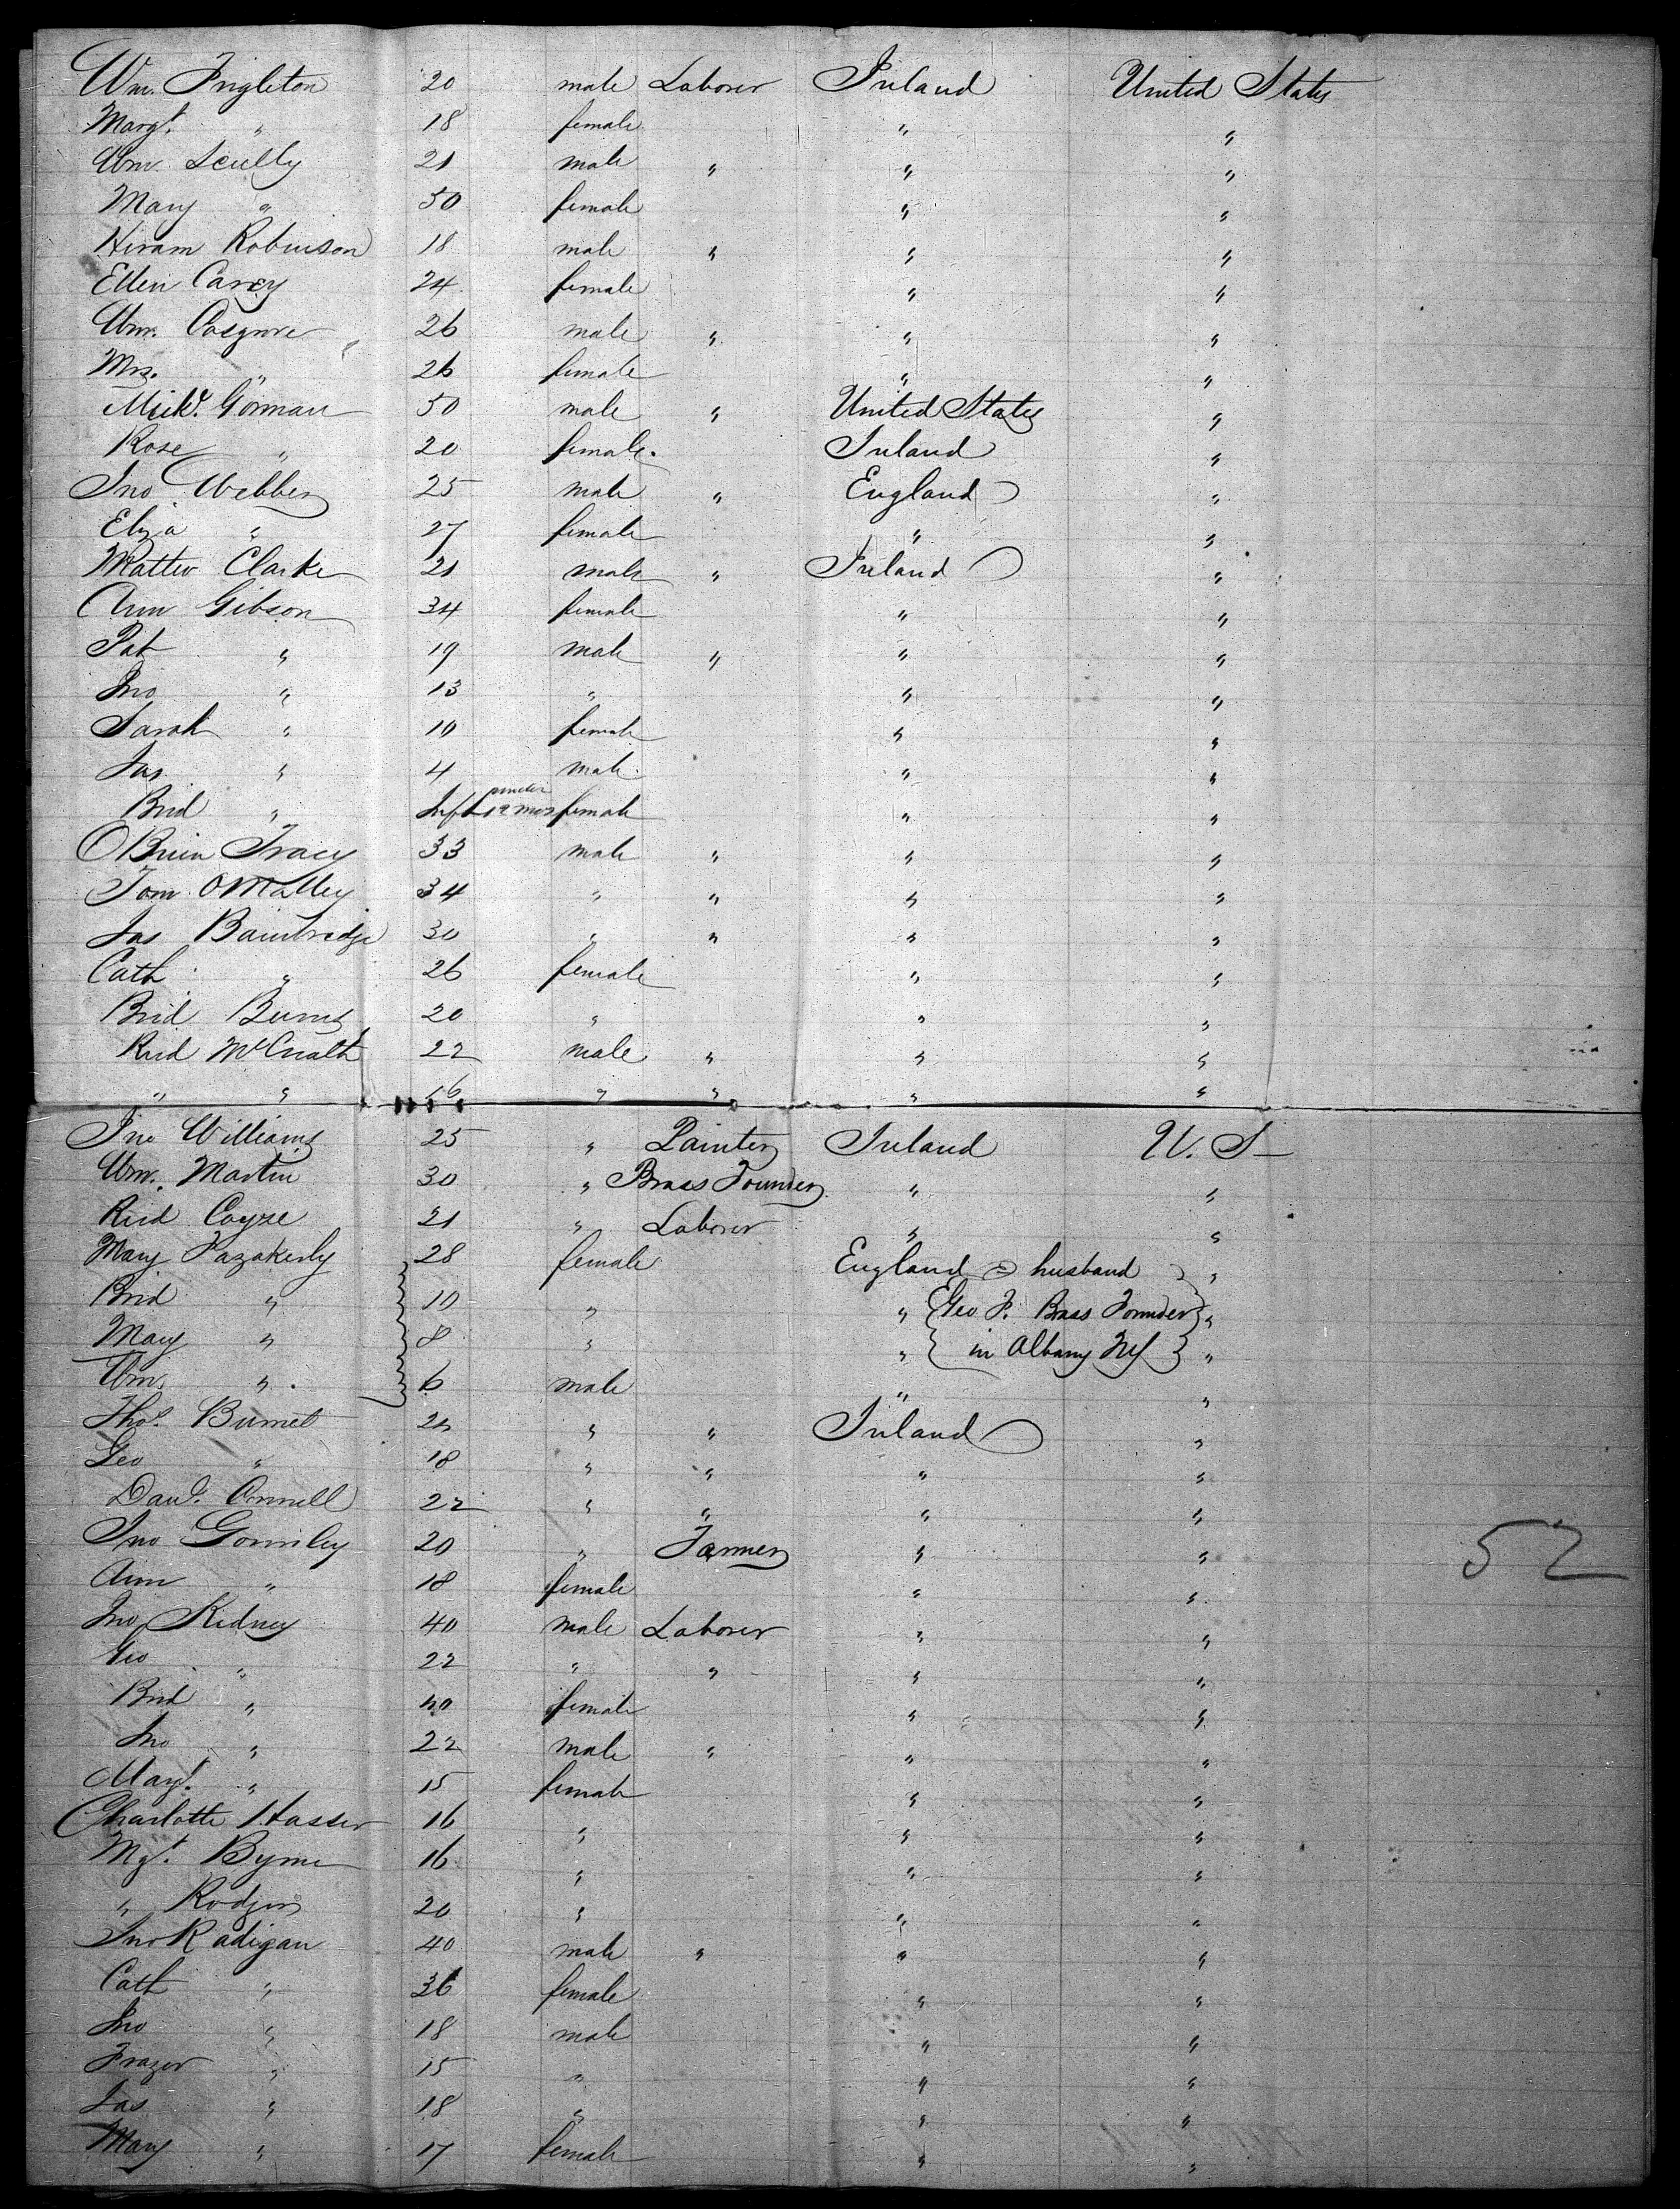 Wm. Singleton 20 male Laborer Ireland United States
Margt. " 18 female " "
Wm. Scully 21 male " " "
Mary " 50 female " "
Hiram Robinson 18 male " " "
Ellen Carey 24 female " "
Wm. Cosgrove 26 male " " "
Mrs. " 26 female " "
Michl. Gorman 50 male " United States "
Rose " 20 female. Ireland "
Jno Webber 25 male " England "
Eliza " 27 female " "
Mattw Clarke 21 male " Ireland "
Ann Gibson 34 female " "
Pat " 19 male " " "
Jno " 13 " " "
Sarah " 10 female " "
Jas " 4 male " "
Brid " Inft under 12 mos female " "
OBrien Tracy 33 male " " "
Tom OMalley 34 " " " "
Jas Bainbradge 30 " " " "
Cath " 26 female " "
Brid Burns 20 " " "
Rid 22 male " " "
" " 16 " " " "
Jno Williams 25 " Painter Ireland U. S
Wm. Martin 30 " Brass Founder " "
Rid Coyne 21 " Laborer " "
Mary Fazakerly 28 female England = husband "
Brid " 10 " " Geo F. Brass Founder "
Mary " 8 " " in Albany NY "
Wm. " 6 male " "
Thos. Burnet 20 " " Ireland "
Geo " 18 " " " "
Danl. Connell 22 " " " "
Jno Gormley 20 " Farmer " "
Ann " 18 female " "
Jno Kidney 40 male Laborer " "
Geo " 22 " " " "
Brid " 40 female " "
Jno " 22 male " " "
Margt. " 15 female " "
Charlotte Hasser 16 " " "
Mgt. Byrne 16 " " "
" Rodgers 20 " " "
Jno Radigan 40 male " " "
Cath " 36 female " "
Jno " 18 male " "
Frazer " 15 " " "
Jas " 18 " " "
Mary " 17 female " "
52